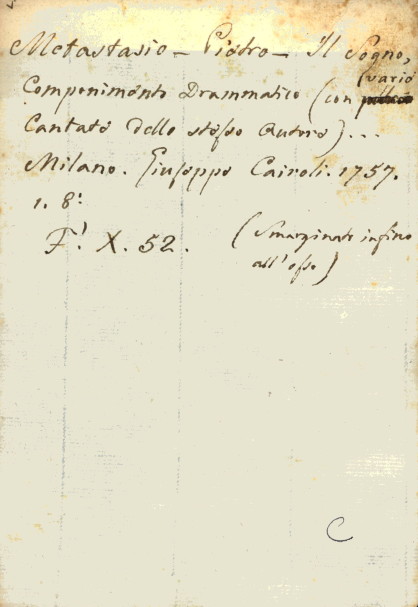 Metastasio - Pietro - Il Sogno,
Componimento Drammatico (con varie
Cantate dello stesso Autore)...
Milano. Giuseppe Cairoli. 1757.
1. 8.º
F.' X. 52. (Smarginato infino
all'osso)
C